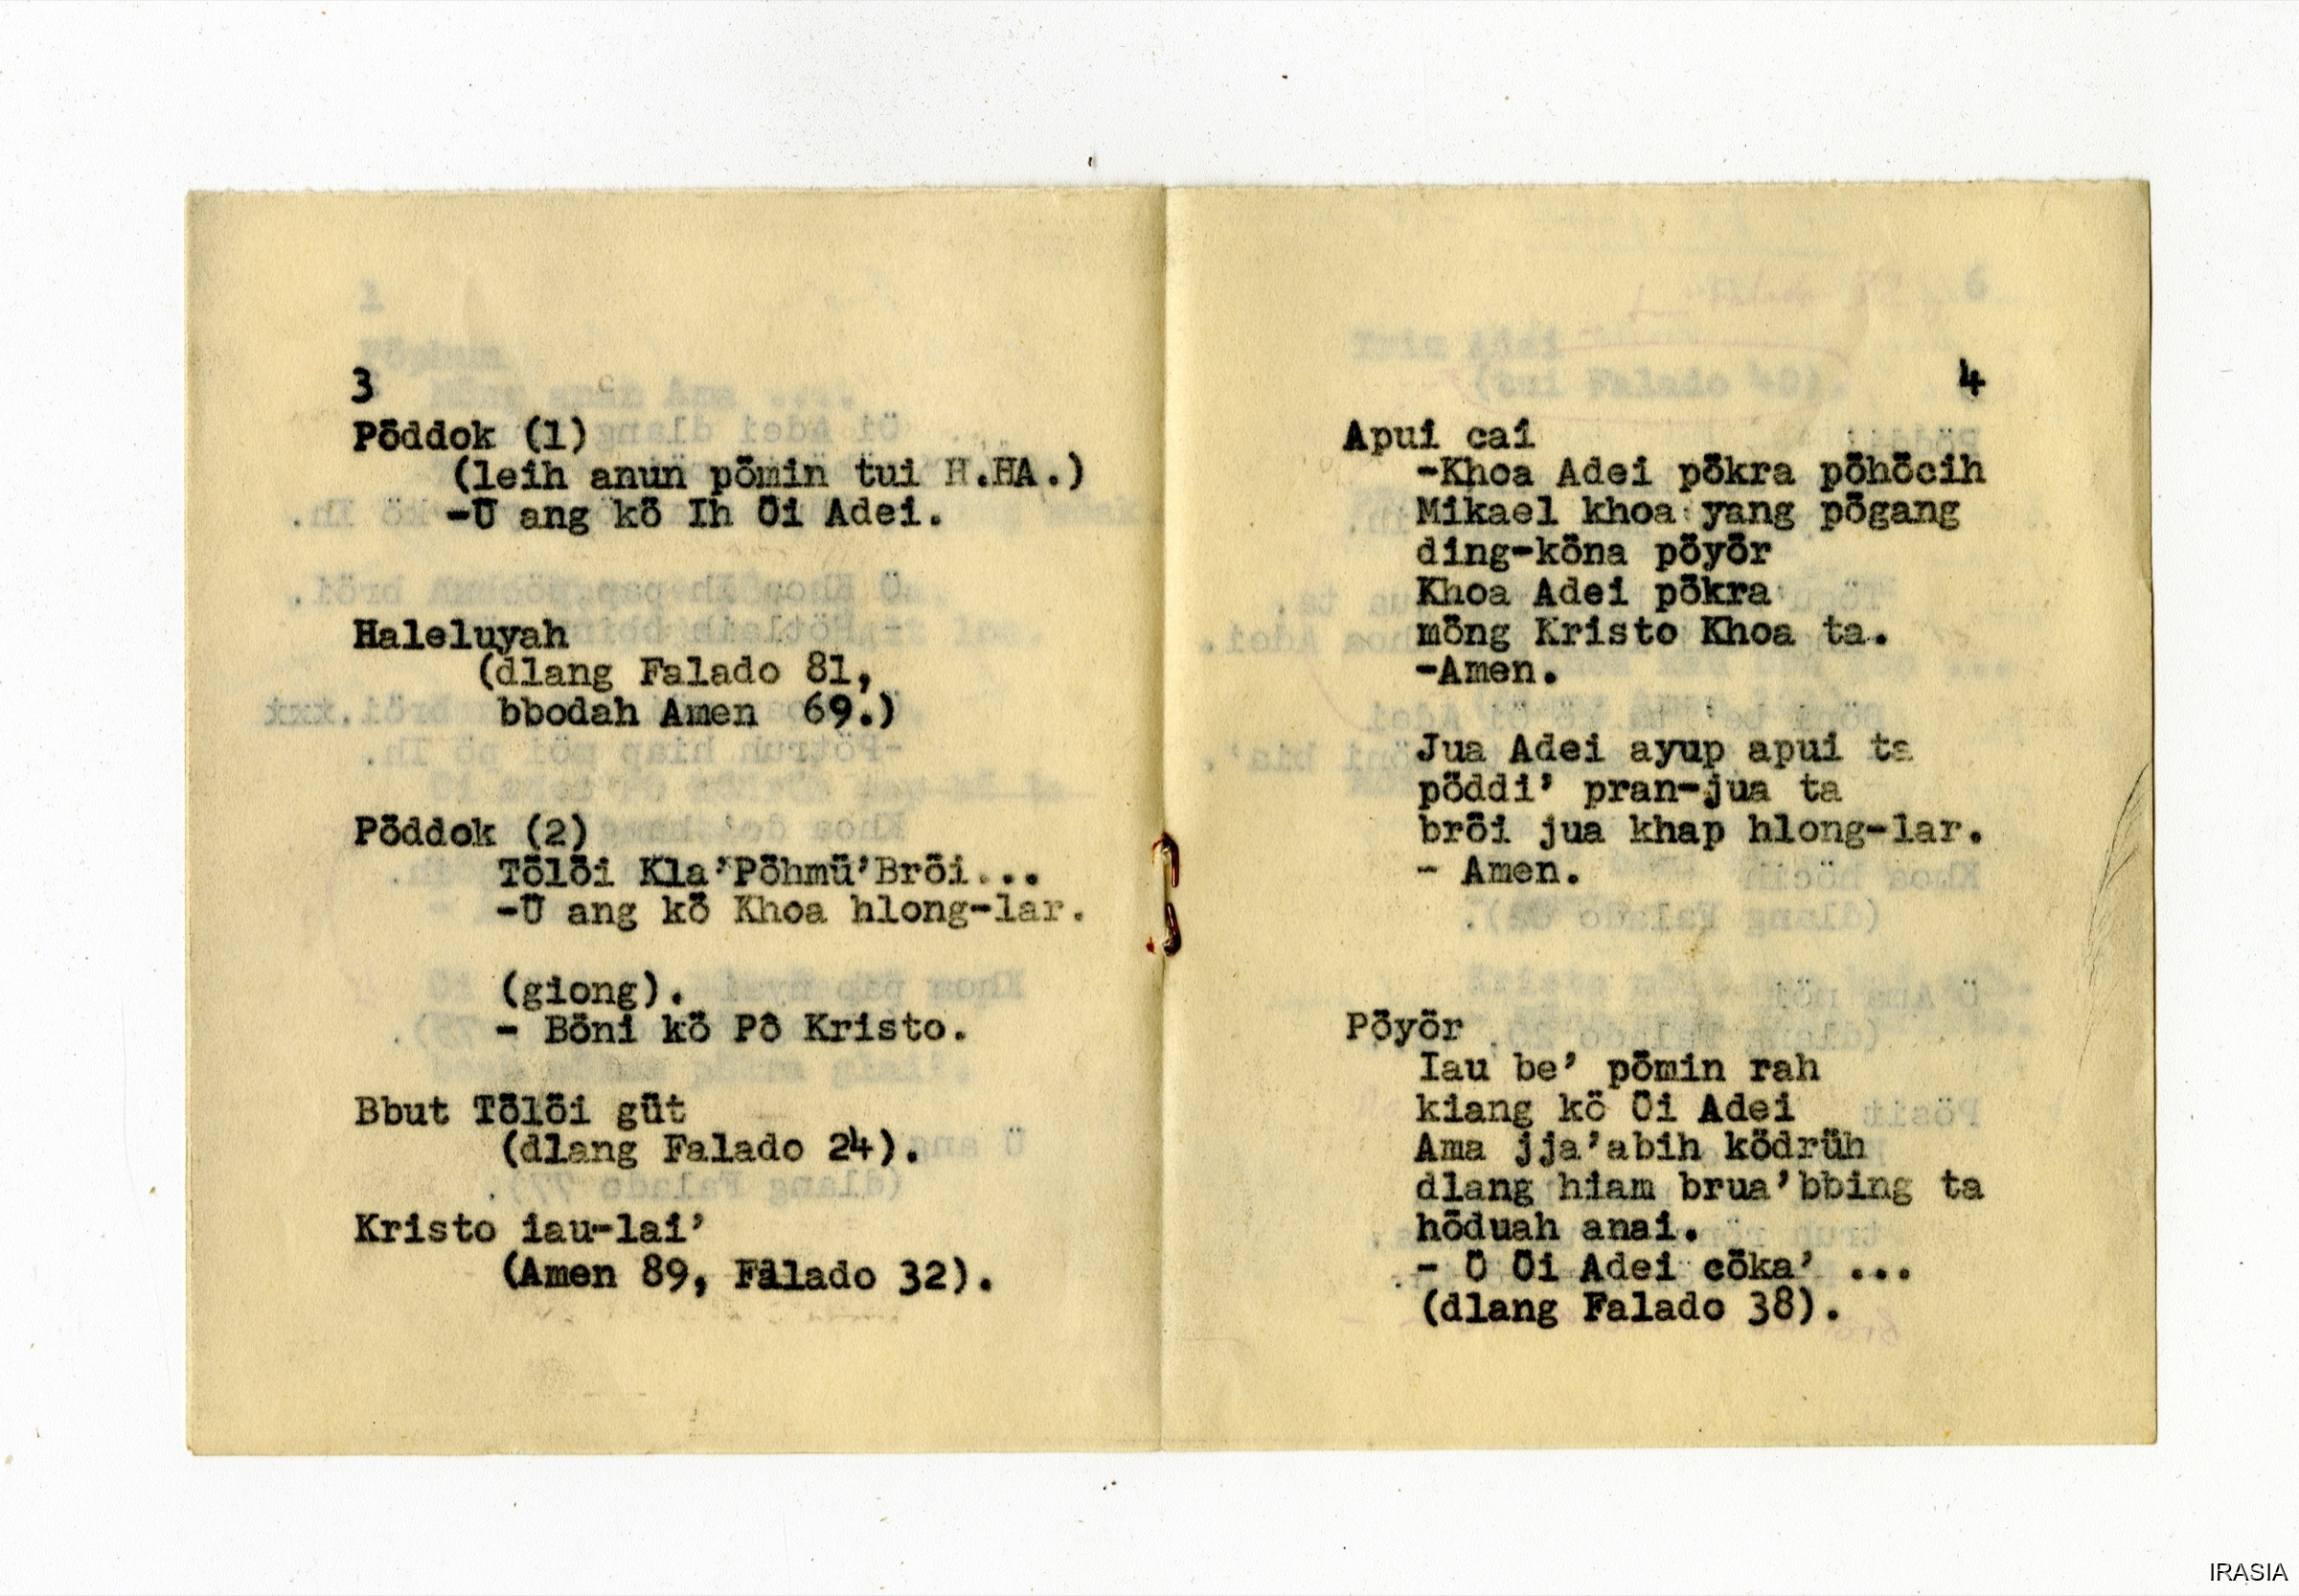 3
Pöddok (1)
(leih anun pömin tui H.HA.)
-Ü ang kö Ih Öi Adei.
Haleluyah
(dlang Falado 81,
bbodah Amen 69.)
Pöddok (2)
Tölöi Kla'Pöhmü'Bröi...
-Ü ang kö Khoa hlong-lar.
(giong).
- Böni kö Pô Kristo.
Bbut Tölöi güt
(dlang Falado 24).
Kristo iau-lai'
(Amen 89, Falado 32).
4
Apui cai
-Khoa Adei pökra pöhöcih
Mikael khoa yang pögang
ding-köna pöyör
Khoa Adei pökra
möng Kristo Khoa ta.
-Amen.
Jua Adei ayup apui ta
pöddi' pran-jua ta
bröi jua khap hlong-lar.
- Amen.
Pöyör
Iau be' pömin rah
kiang kö Öi Adei
Ama jja'abih ködrüh
dlang hiam brua'bbing ta
höduah anai.
- Ö Öi Adei cöka' ...
(dlang Falado 38).
IRASIA